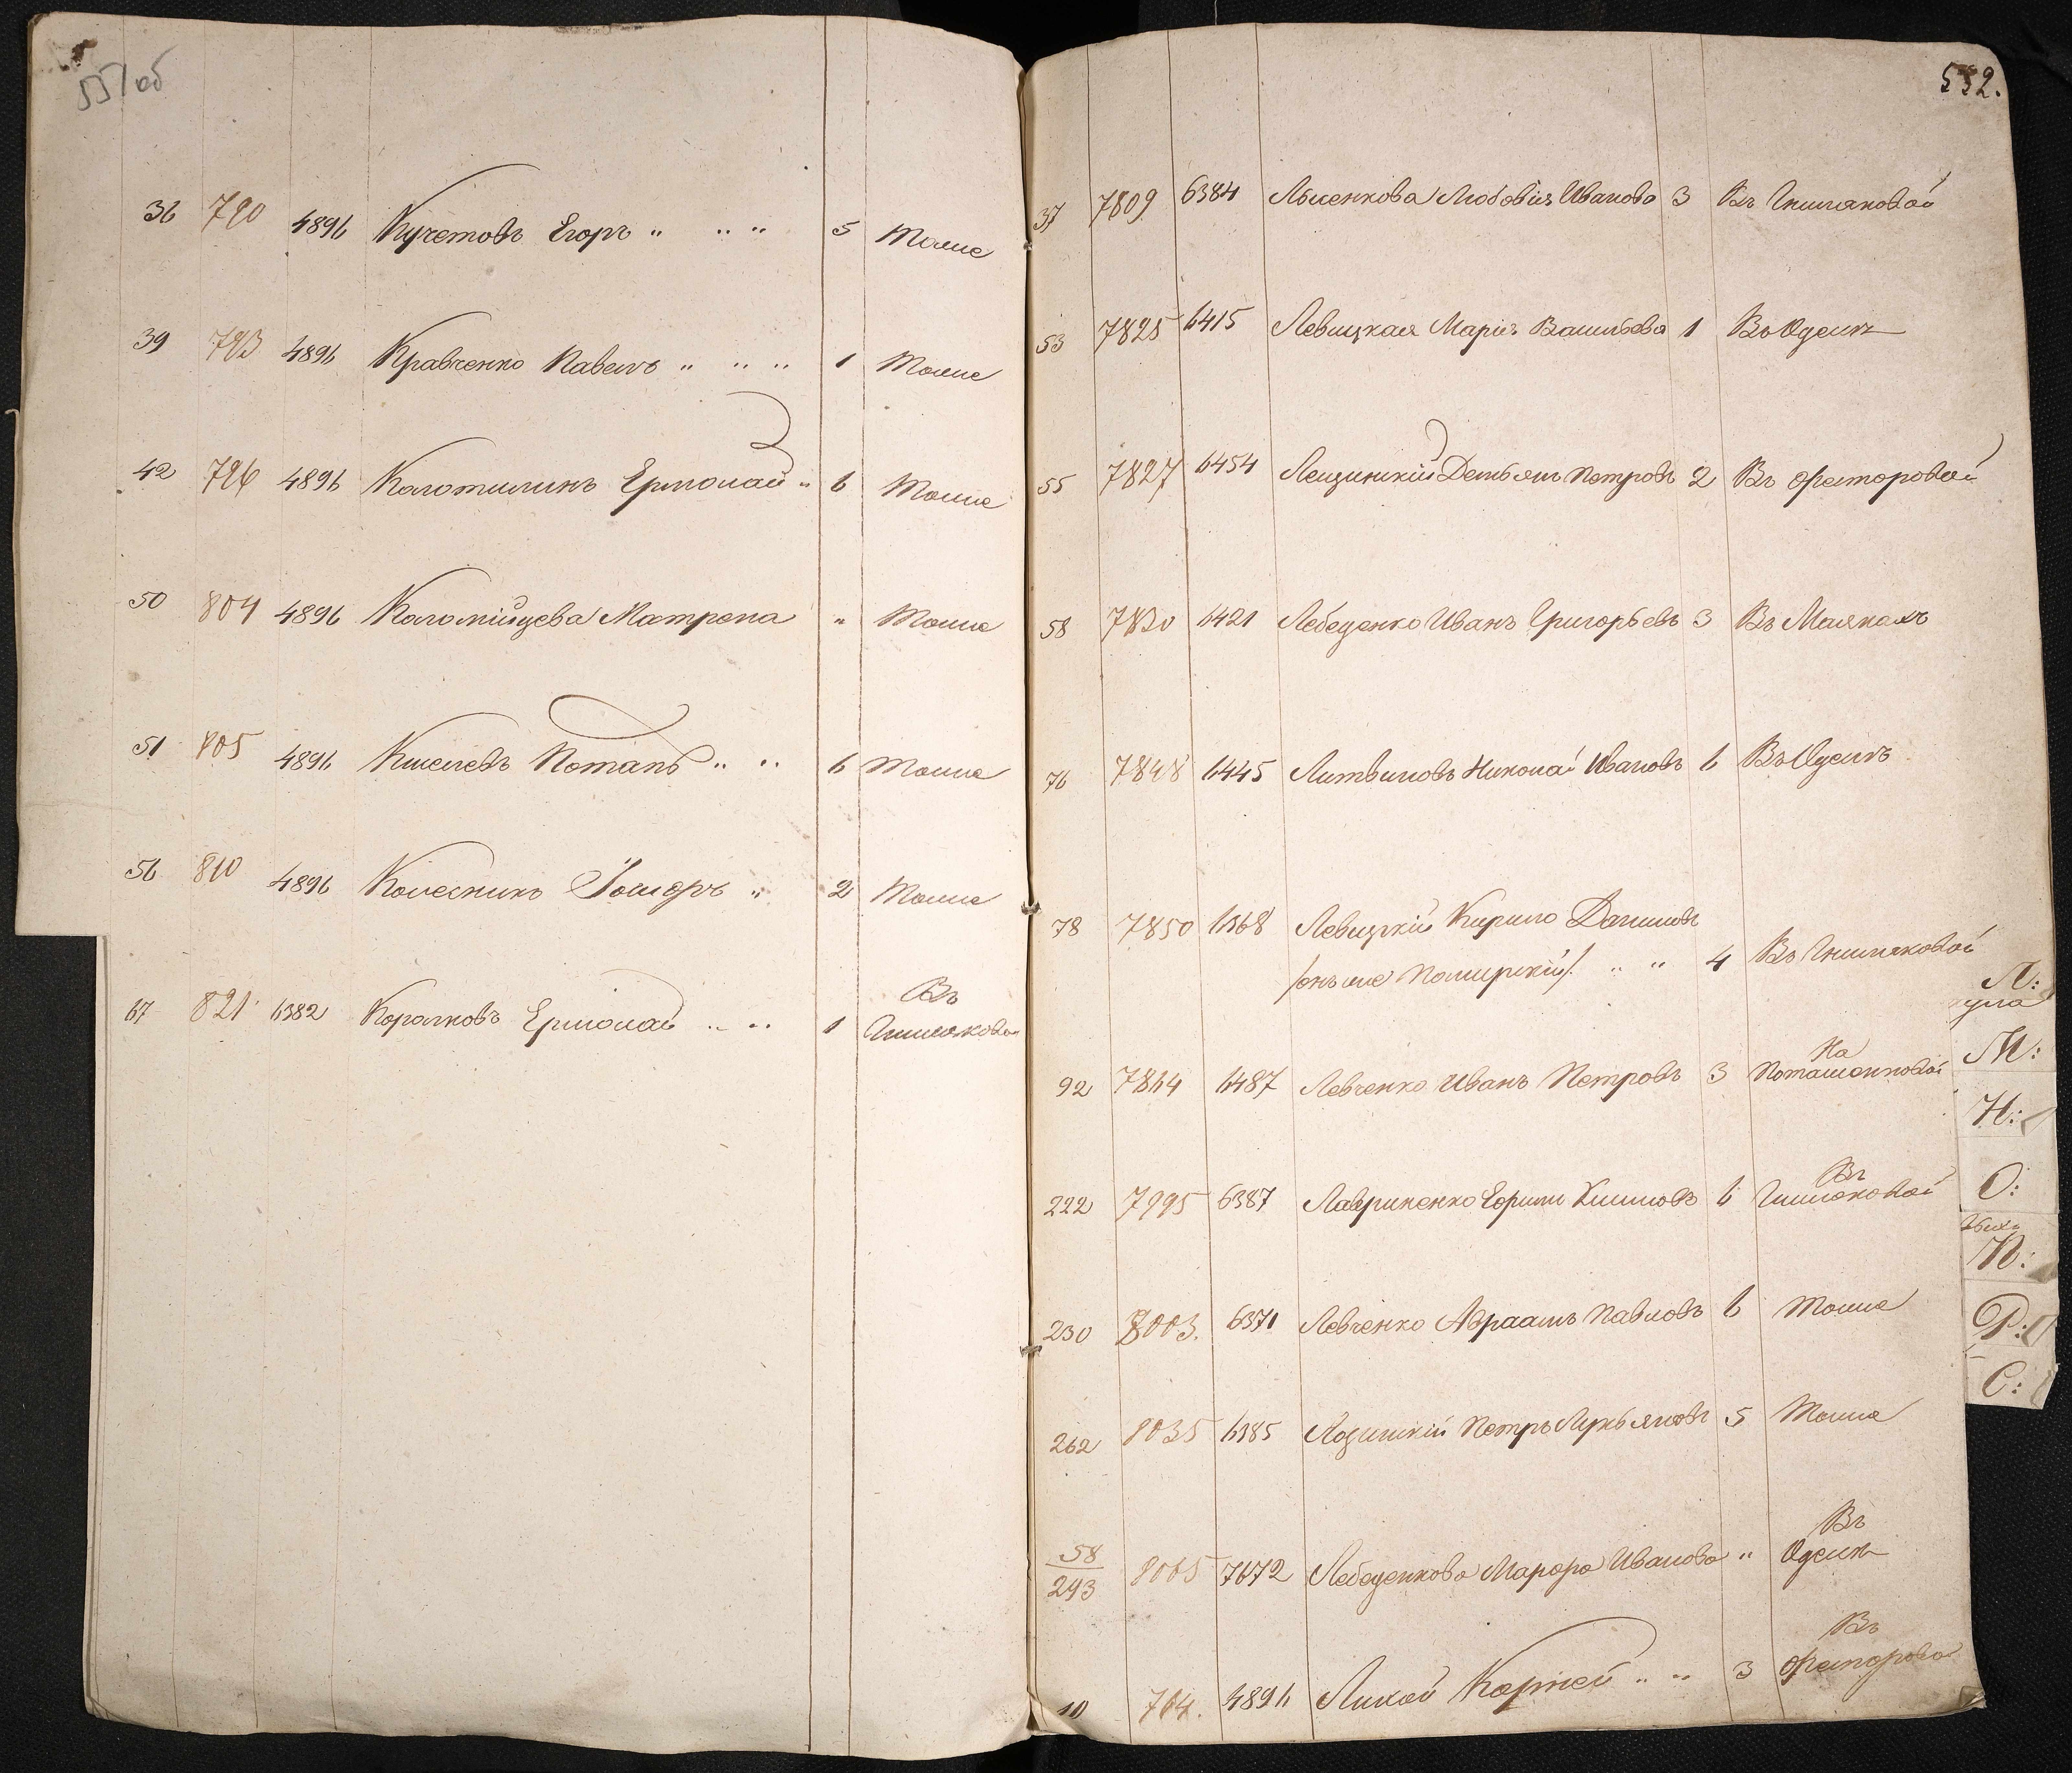 551об
36 790 4896 Кучетовъ Егоръ " " " 5 Тоже
39 793 4896 Кравченко Павелъ " " " 1 Тоже
42 796 4896 Колотилинъ Ермолай " 6 Тоже
50 804 4896 Коломійцева Матрена " Тоже
51 805 4896 Киселевъ Потапъ " " 6 Тоже
56 810 4896 Колесникъ " 2 Тоже
Въ
67 821 6382 Коралковъ Ермолай " " 1
552.
37 7809 6384 Лысенкова Любовія Иванова 3 Въ Гниляковой
53 7825 6415 Левицкая Марія Васильева 1 Въ Одессѣ
55 7827 6454 Лещинскій Демьянъ Петровъ 2 Въ Фесторовой
58 7830 6421 Лебеденко Иванъ Григорьевъ 3 Въ Маякахъ
76 7848 6445 Литвиновъ Николай Ивановъ 6 Въ Одессѣ
78 7850 6368 Левицкій Кирило Даниловъ
/онъ же / " " 4 Въ Гниляковой
На
92 7864 6487 Левченко Иванъ Петровъ 3 Поташенковой
Въ
222 7995 6387 Лавриненко Ефимъ Климовъ 6 Гниляковой
230 8003. 6371 Левченко Авраамъ Павловъ 6 Тоже
262 8035 6385 Лозинскій Петръ Лукьяновъ 5 Тоже
Въ
58/293 8065 7672 Лебеденкова Марфа Иванова " Одессѣ
Въ
10 764. 4896 Ликой Корней " " 3 Фесторовой
Л:
М:
Н:
О:
П:
Р:
С: